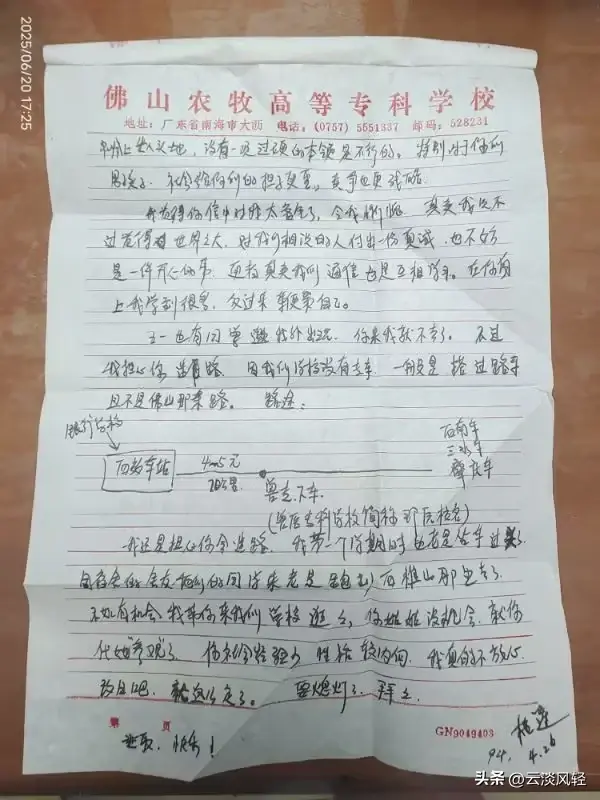 2025/06/20 17:25
佛山农牧高等专科学校
地址：广东省南海市大沥 电话：(0757) 5551337 邮码：528231
没有一定过硬的本领是不行的。特别对于你们
男孩子。社会给你们的担子更重，竞争也更残酷。
我觉得你信中对我太客气了，令我惭愧。其实我只不
过觉得世界之大，对我们相识的人付出一份真诚，也不妨
是一件开心的事。再者其实我们通信也是互相学习。在你身
上我学到很多，
五一也有同学 你来我就不去了。不过
我担心你迷路，因我们学校没有专车，一般是搭过路车
且不是佛山那条路。路途：
银行学校
西站车站
4～5元
兽专下车
西南车
三水车
肇庆车
(兽医专科学校简称 )
我还是担心你会迷路。我第一个学期时也老是坐车过头了
的同学来老是跑到西樵山那里去了。
不如有机会我带你来我们学校逛逛，你姐姐没机会，就你
代她参观了。你社会经验少，性格较内向，我真的不放心。
改日吧，就这么定了。要熄灯了，拜拜
第 页
GN9049403
快乐！
94.
4.26
头条 @云淡风轻